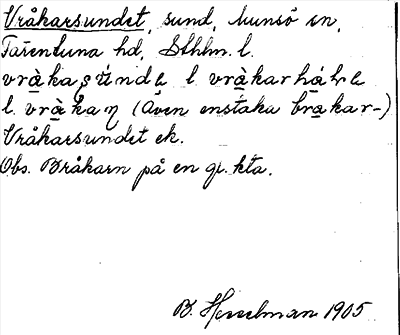 Vråkarsundet, sund, Munsö sn,
Färentuna hd, Sthlm. l.
vràkaʂúndɛ l. vràkarhávɛ
l. vràkaɳ (Även enstaka bràkar-)
Vråkarsundet ek.
Obs. Bråkarn på en gl. kta.
B. Hesselman 1905